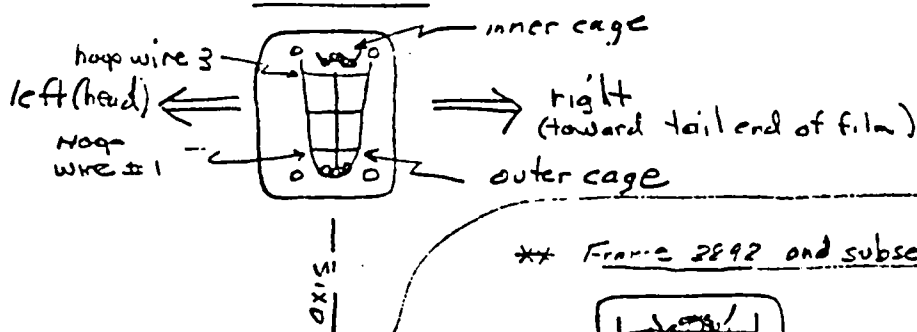 inner cage
hoop wire 3
left (head)
right
(toward tail end of film)
Hoop
wire #1
outer cage
** Frame 2892 and subse
axis